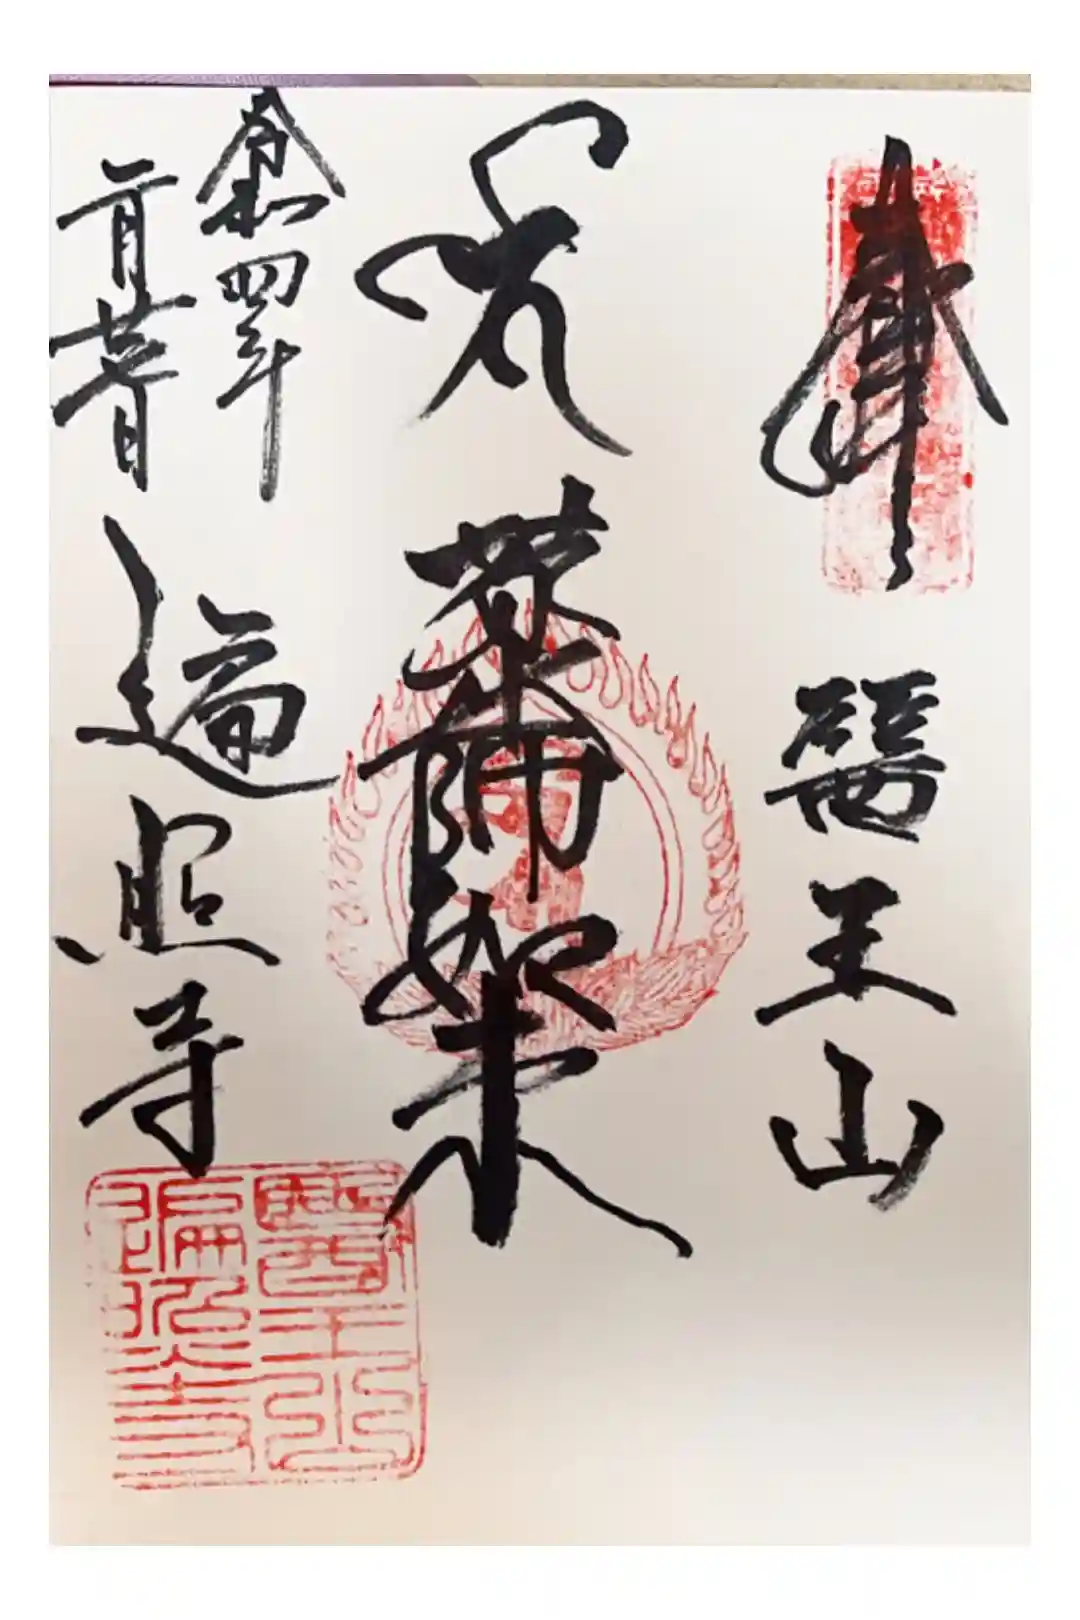 奉拝
醫王山
薬師如来
令和四年
二月
遍照寺
醫王山
遍照寺